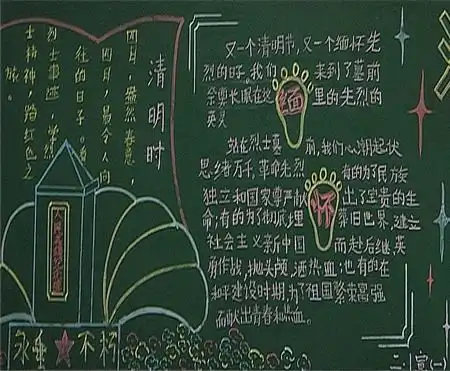 清明时
四月，盎然春意，
四月，最令人向
往的日子。看
烈士事迹，学烈
士精神，踏红色之
旅。
永垂不朽
又一个清明节，又一个缅怀先
烈的日子。我们来到了墓前
祭奠长眠在这里的先烈的
英灵
缅
站在烈士墓前，我们心潮起伏
思绪万千，革命先烈有的为了民族
独立和国家尊严献出了宝贵的生
命；有的为了彻底埋葬旧世界，建立
社会主义新中国而赴后继，英
勇作战，抛头颅，洒热血；也有的在
和平建设时期，为了祖国繁荣富强
而献出青春和热血。
怀